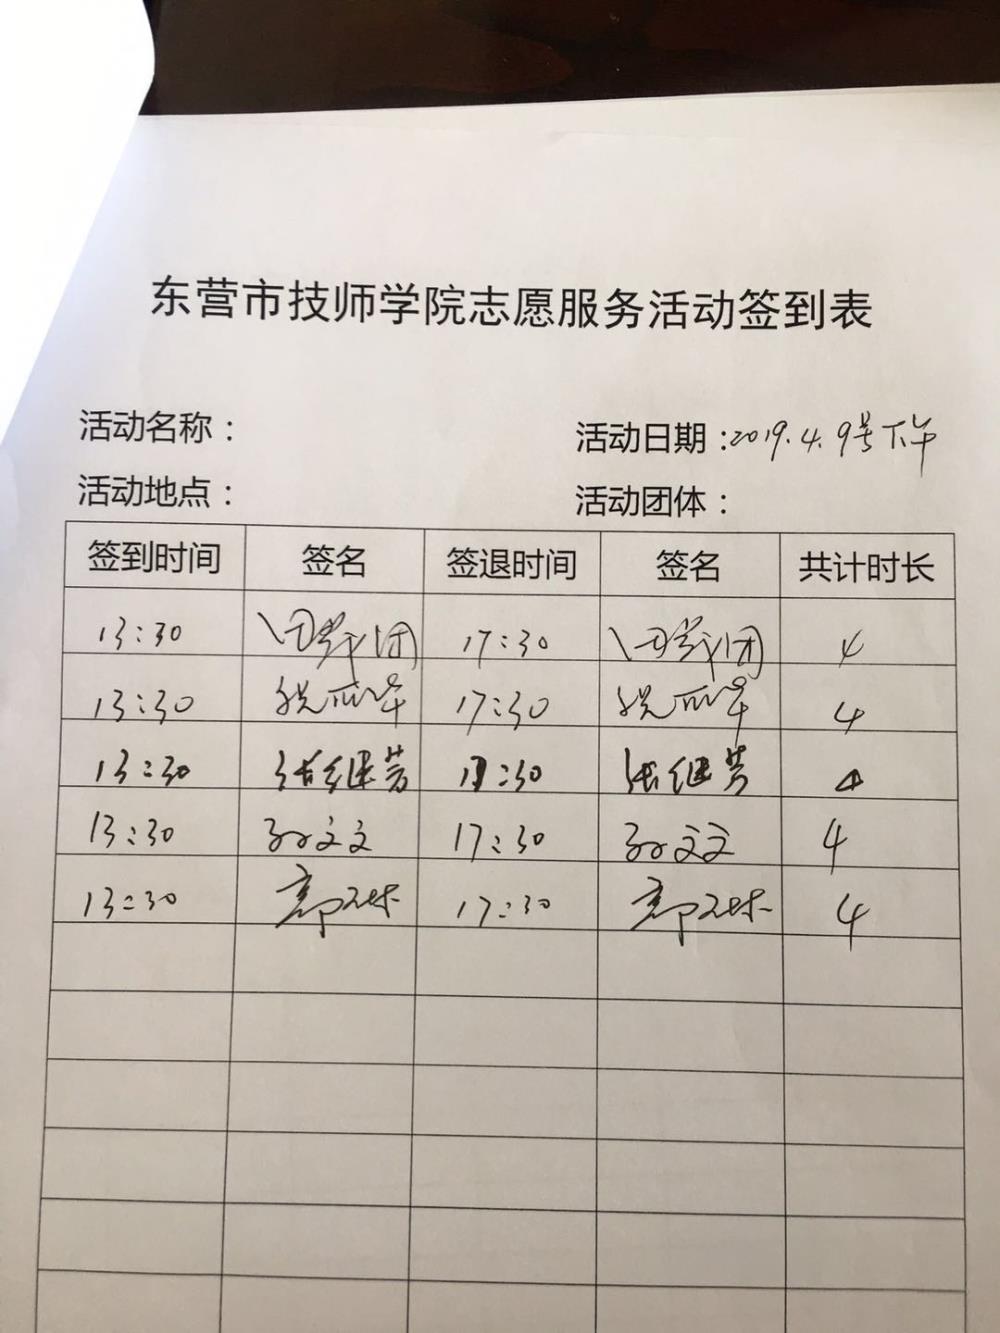 东营市技师学院志愿服务活动签到表
活动名称：
活动日期：2019.4.9号下午
活动地点：
活动团体：
签到时间 签名 签退时间 签名 共计时长
13:30 17:30 4
13:30 17:30 4
13:30 张继芳 17:30 张继芳 4
13:30 孙文文 17:30 孙文文 4
13:30 17:30 4